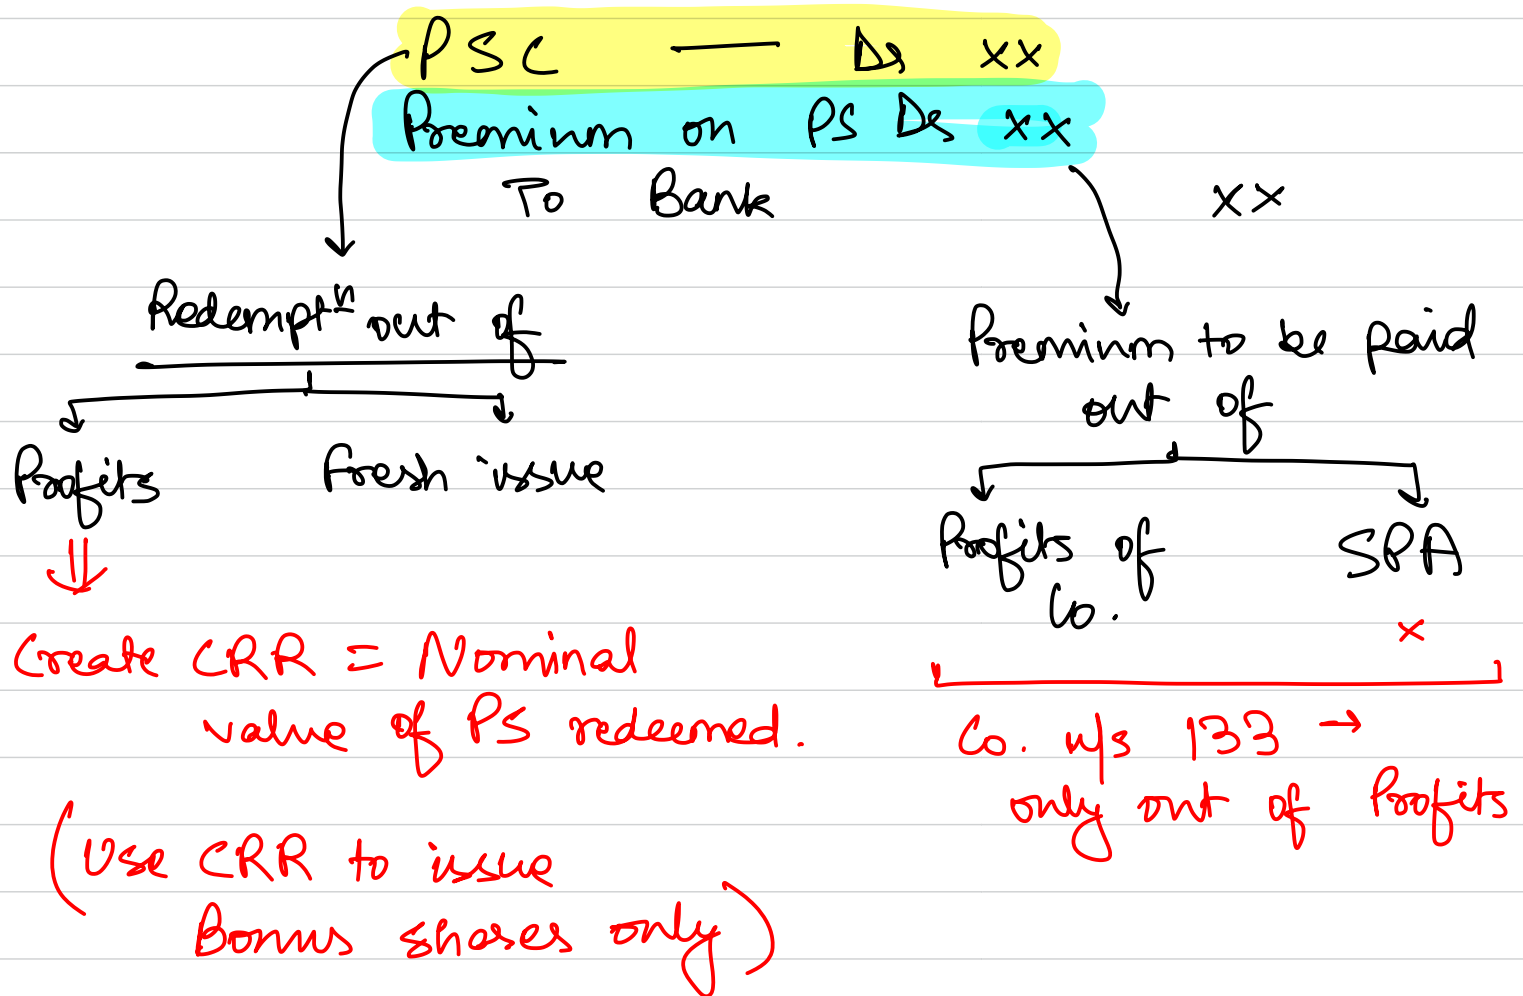 PSC — Dr xx
Premium on PS Dr xx
To Bank xx
Redemptⁿ out of
Profits Fresh issue
Create CRR = Nominal
value of PS redeemed.
(Use CRR to issue
Bonus shares only)
Premium to be paid
out of
Profits of SPA
Co. x
Co. u/s 133 →
only out of Profits